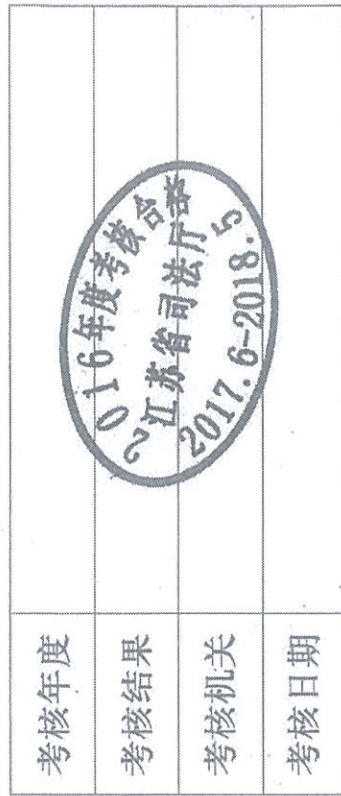 考核年度
考核结果
考核机关
考核日期
2016年度考核合格
江苏省司法厅
2017.6-2018.5